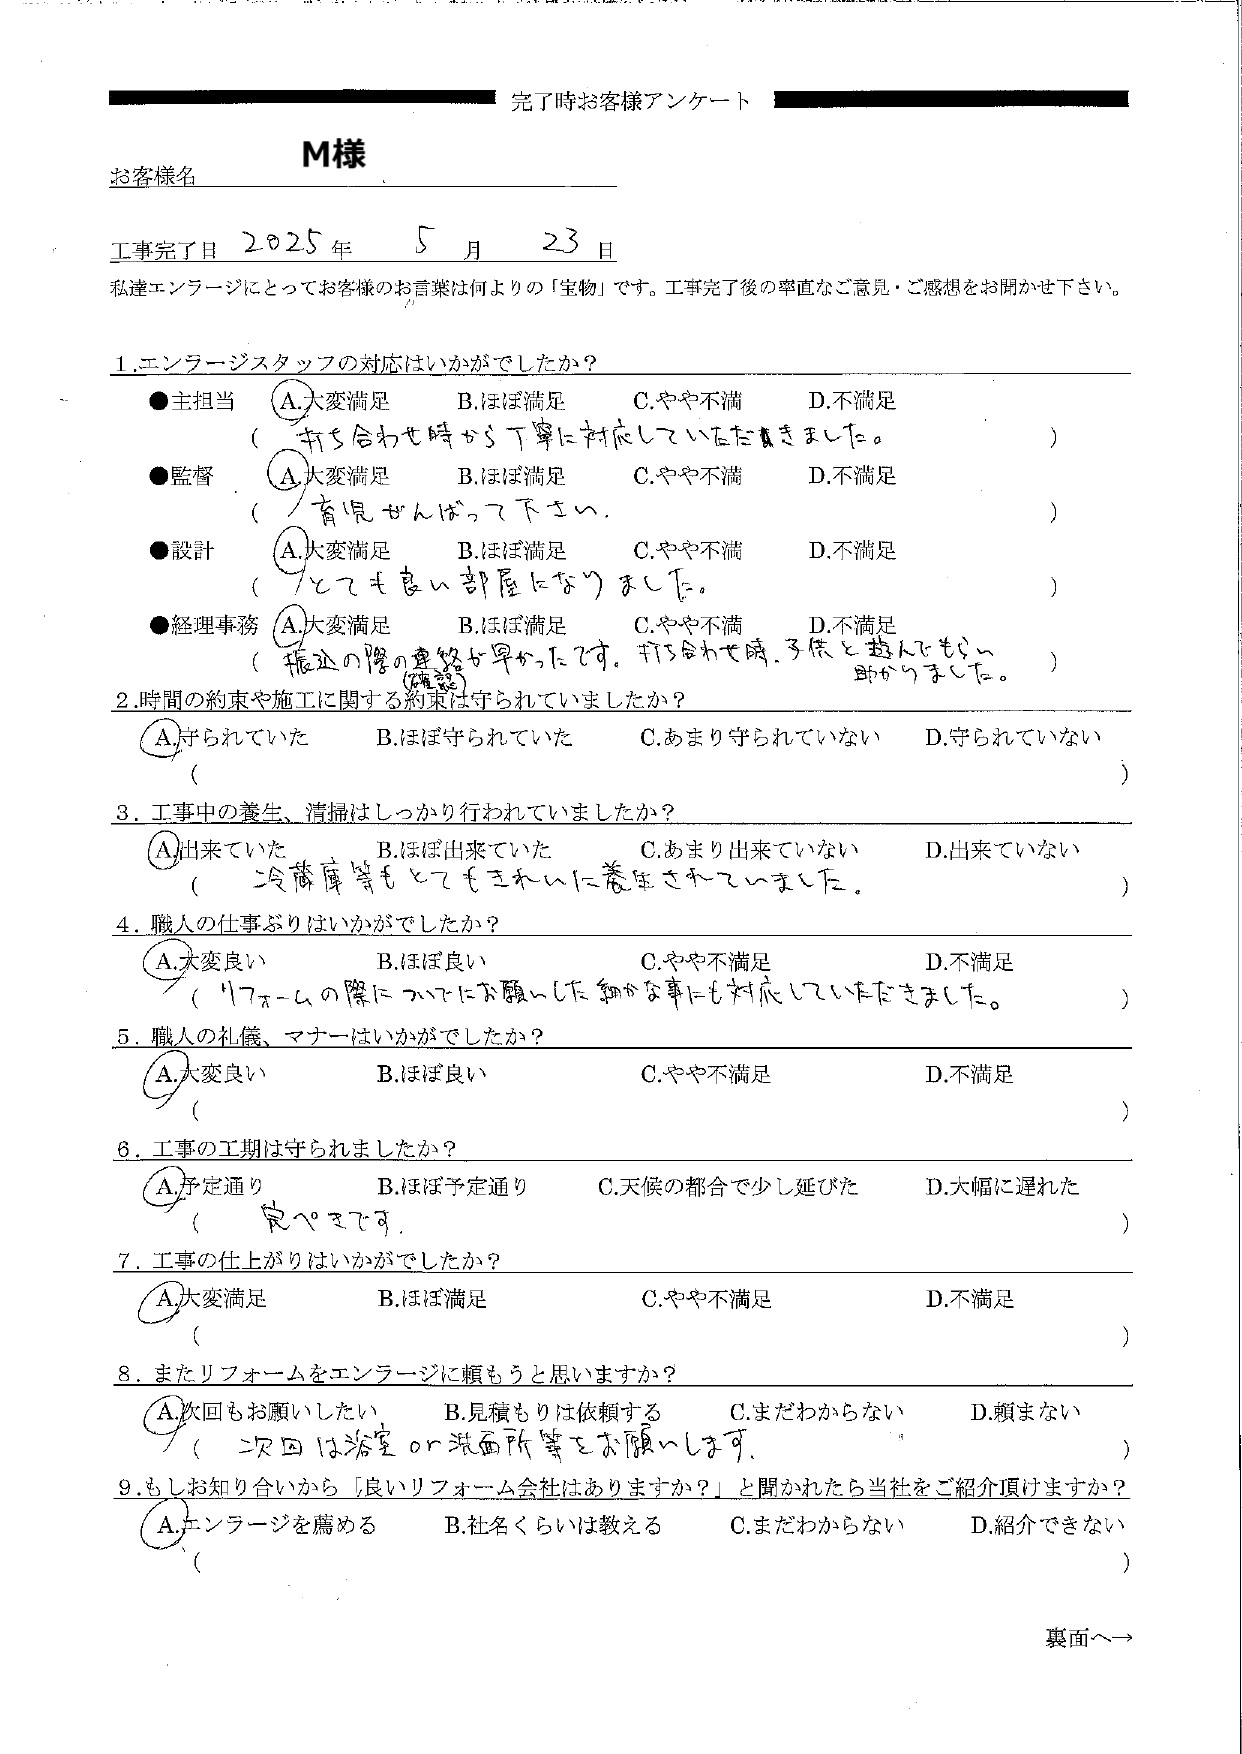 完了時お客様アンケート
M様
お客様名
工事完了日 2025 年 5 月 23 日
私達エンラージにとってお客様のお言葉は何よりの「宝物」です。工事完了後の率直なご意見・ご感想をお聞かせ下さい。
1.エンラージスタッフの対応はいかがでしたか？
●主担当 A.大変満足 B.ほぼ満足 C.やや不満 D.不満足
( 打ち合わせ時から丁寧に対応していただきました。 )
●監督 A.大変満足 B.ほぼ満足 C.やや不満 D.不満足
( 育児がんばって下さい. )
●設計 A.大変満足 B.ほぼ満足 C.やや不満 D.不満足
( とても良い部屋になりました。 )
●経理事務 A.大変満足 B.ほぼ満足 C.やや不満 D.不満足
( 振込の際の連絡が早かったです。打ち合わせ時、子供と遊んでもらい
(確認) 助かりました。 )
2.時間の約束や施工に関する約束は守られていましたか？
A.守られていた B.ほぼ守られていた C.あまり守られていない D.守られていない
( )
3. 工事中の養生、清掃はしっかり行われていましたか？
A.出来ていた B.ほぼ出来ていた C.あまり出来ていない D.出来ていない
( 冷蔵庫等もとてもきれいに養生されていました. )
4. 職人の仕事ぶりはいかがでしたか？
A.大変良い B.ほぼ良い C.やや不満足 D.不満足
( リフォームの際についでにお願いした細かな事にも対応していただきました。 )
5. 職人の礼儀、マナーはいかがでしたか？
A.大変良い B.ほぼ良い C.やや不満足 D.不満足
( )
6. 工事の工期は守られましたか？
A.予定通り B.ほぼ予定通り C.天候の都合で少し延びた D.大幅に遅れた
( 完ぺきです. )
7. 工事の仕上がりはいかがでしたか？
A.大変満足 B.ほぼ満足 C.やや不満足 D.不満足
( )
8. またリフォームをエンラージに頼もうと思いますか？
A.次回もお願いしたい B.見積もりは依頼する C.まだわからない D.頼まない
( 次回は浴室or洗面所等をお願いします. )
9.もしお知り合いから「良いリフォーム会社はありますか？」と聞かれたら当社をご紹介頂けますか？
A.エンラージを薦める B.社名くらいは教える C.まだわからない D.紹介できない
( )
裏面へ→